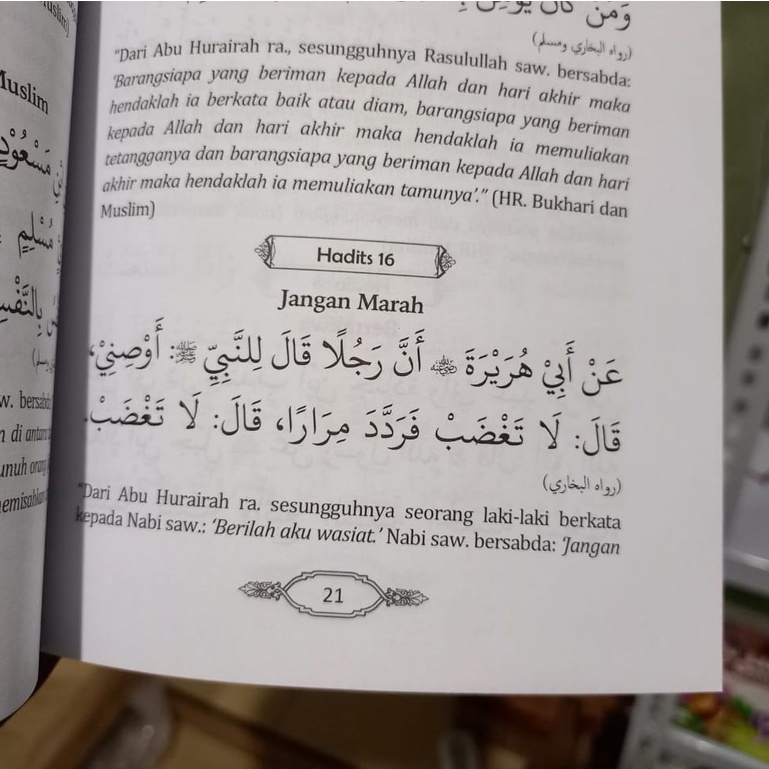 (رواه البخاري ومسلم)
"Dari Abu Hurairah ra., sesungguhnya Rasulullah saw. bersabda:
'Barangsiapa yang beriman kepada Allah dan hari akhir maka
hendaklah ia berkata baik atau diam, barangsiapa yang beriman
kepada Allah dan hari akhir maka hendaklah ia memuliakan
tetangganya dan barangsiapa yang beriman kepada Allah dan hari
akhir maka hendaklah ia memuliakan tamunya'." (HR. Bukhari dan
Muslim)
Hadits 16
Jangan Marah
عَنْ أَبِيْ هُرَيْرَةَ ﵁ أَنَّ رَجُلًا قَالَ لِلنَّبِيِّ ﷺ: أَوْصِنِيْ،
قَالَ: لَا تَغْضَبْ فَرَدَّدَ مِرَارًا، قَالَ: لَا تَغْضَبْ.
(رواه البخاري)
"Dari Abu Hurairah ra. sesungguhnya seorang laki-laki berkata
kepada Nabi saw.: 'Berilah aku wasiat.' Nabi saw. bersabda: 'Jangan
21